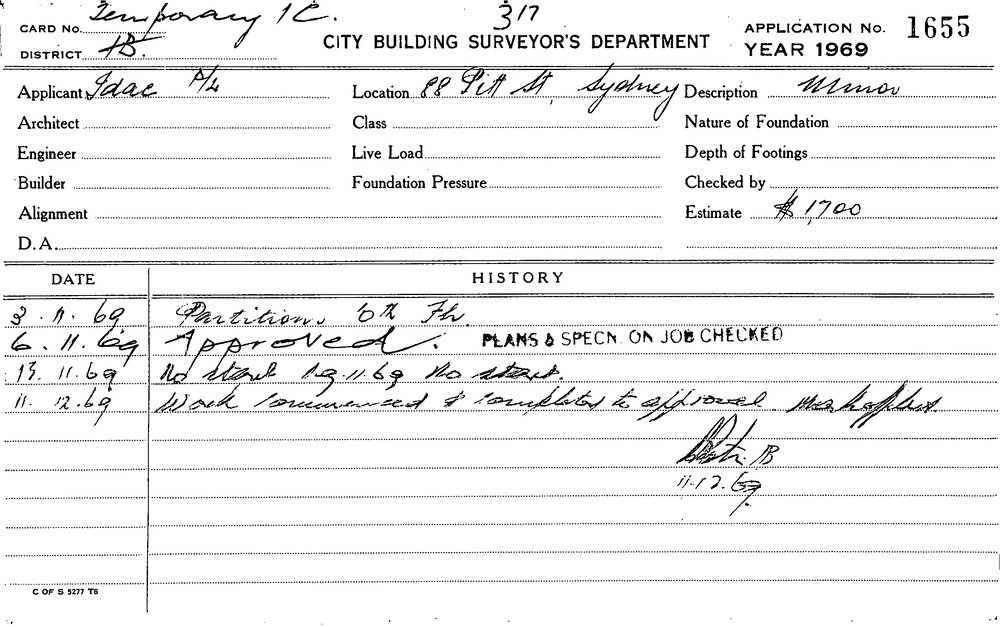 Temporary 1C. 317
CARD No. CITY BUILDING SURVEYOR'S DEPARTMENT APPLICATION No. 1655
DISTRICT 1B. YEAR 1969
Applicant Idac P/L Location 88 Pitt St, Sydney Description Minor
Architect Class Nature of Foundation
Engineer Live Load Depth of Footings
Builder Foundation Pressure Checked by
Alignment Estimate $1,700
D.A.
DATE HISTORY
3.11.69 Partitions 6th Flr.
6.11.69 Approved. PLANS & SPECN. ON JOB CHECKED
13.11.69 No start 19.11.69 No start.
11.12.69 Work commenced & completed to approval.
1B
11.12.69
C OF S 5277 T6